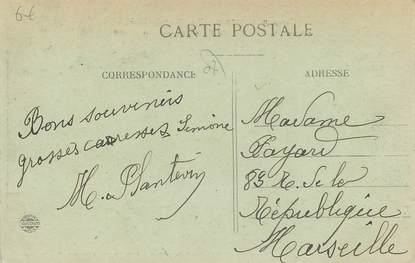 6€
CARTE POSTALE
CORRESPONDANCE
ADRESSE
Bons souvenirs
grosses caresses Simone
M. Plantevin
Madame
Bayard
89 R. de la
République
Marseille